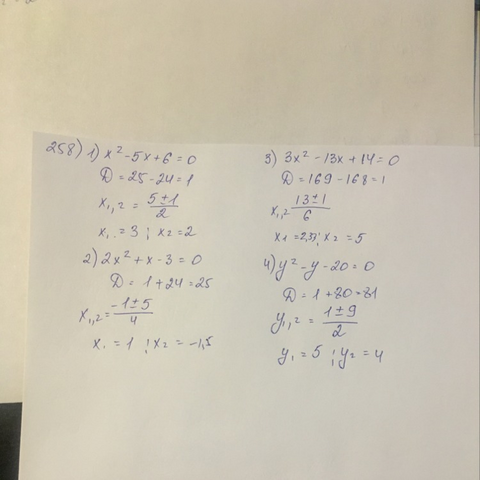 258) 1) x² - 5x + 6 = 0
D = 25 - 24 = 1
x₁,₂ = (5 ± 1)/2
x₁ = 3 ; x₂ = 2
2) 2x² + x - 3 = 0
D = 1 + 24 = 25
x₁,₂ = (-1 ± 5)/4
x₁ = 1 ; x₂ = -1,5
3) 3x² - 13x + 14 = 0
D = 169 - 168 = 1
x₁,₂ (13 ± 1)/6
x₁ = 2,3 ; x₂ = 5
4) y² - y - 20 = 0
D = 1 + 80 = 81
y₁,₂ = (1 ± 9)/2
y₁ = 5 ; y₂ = 4